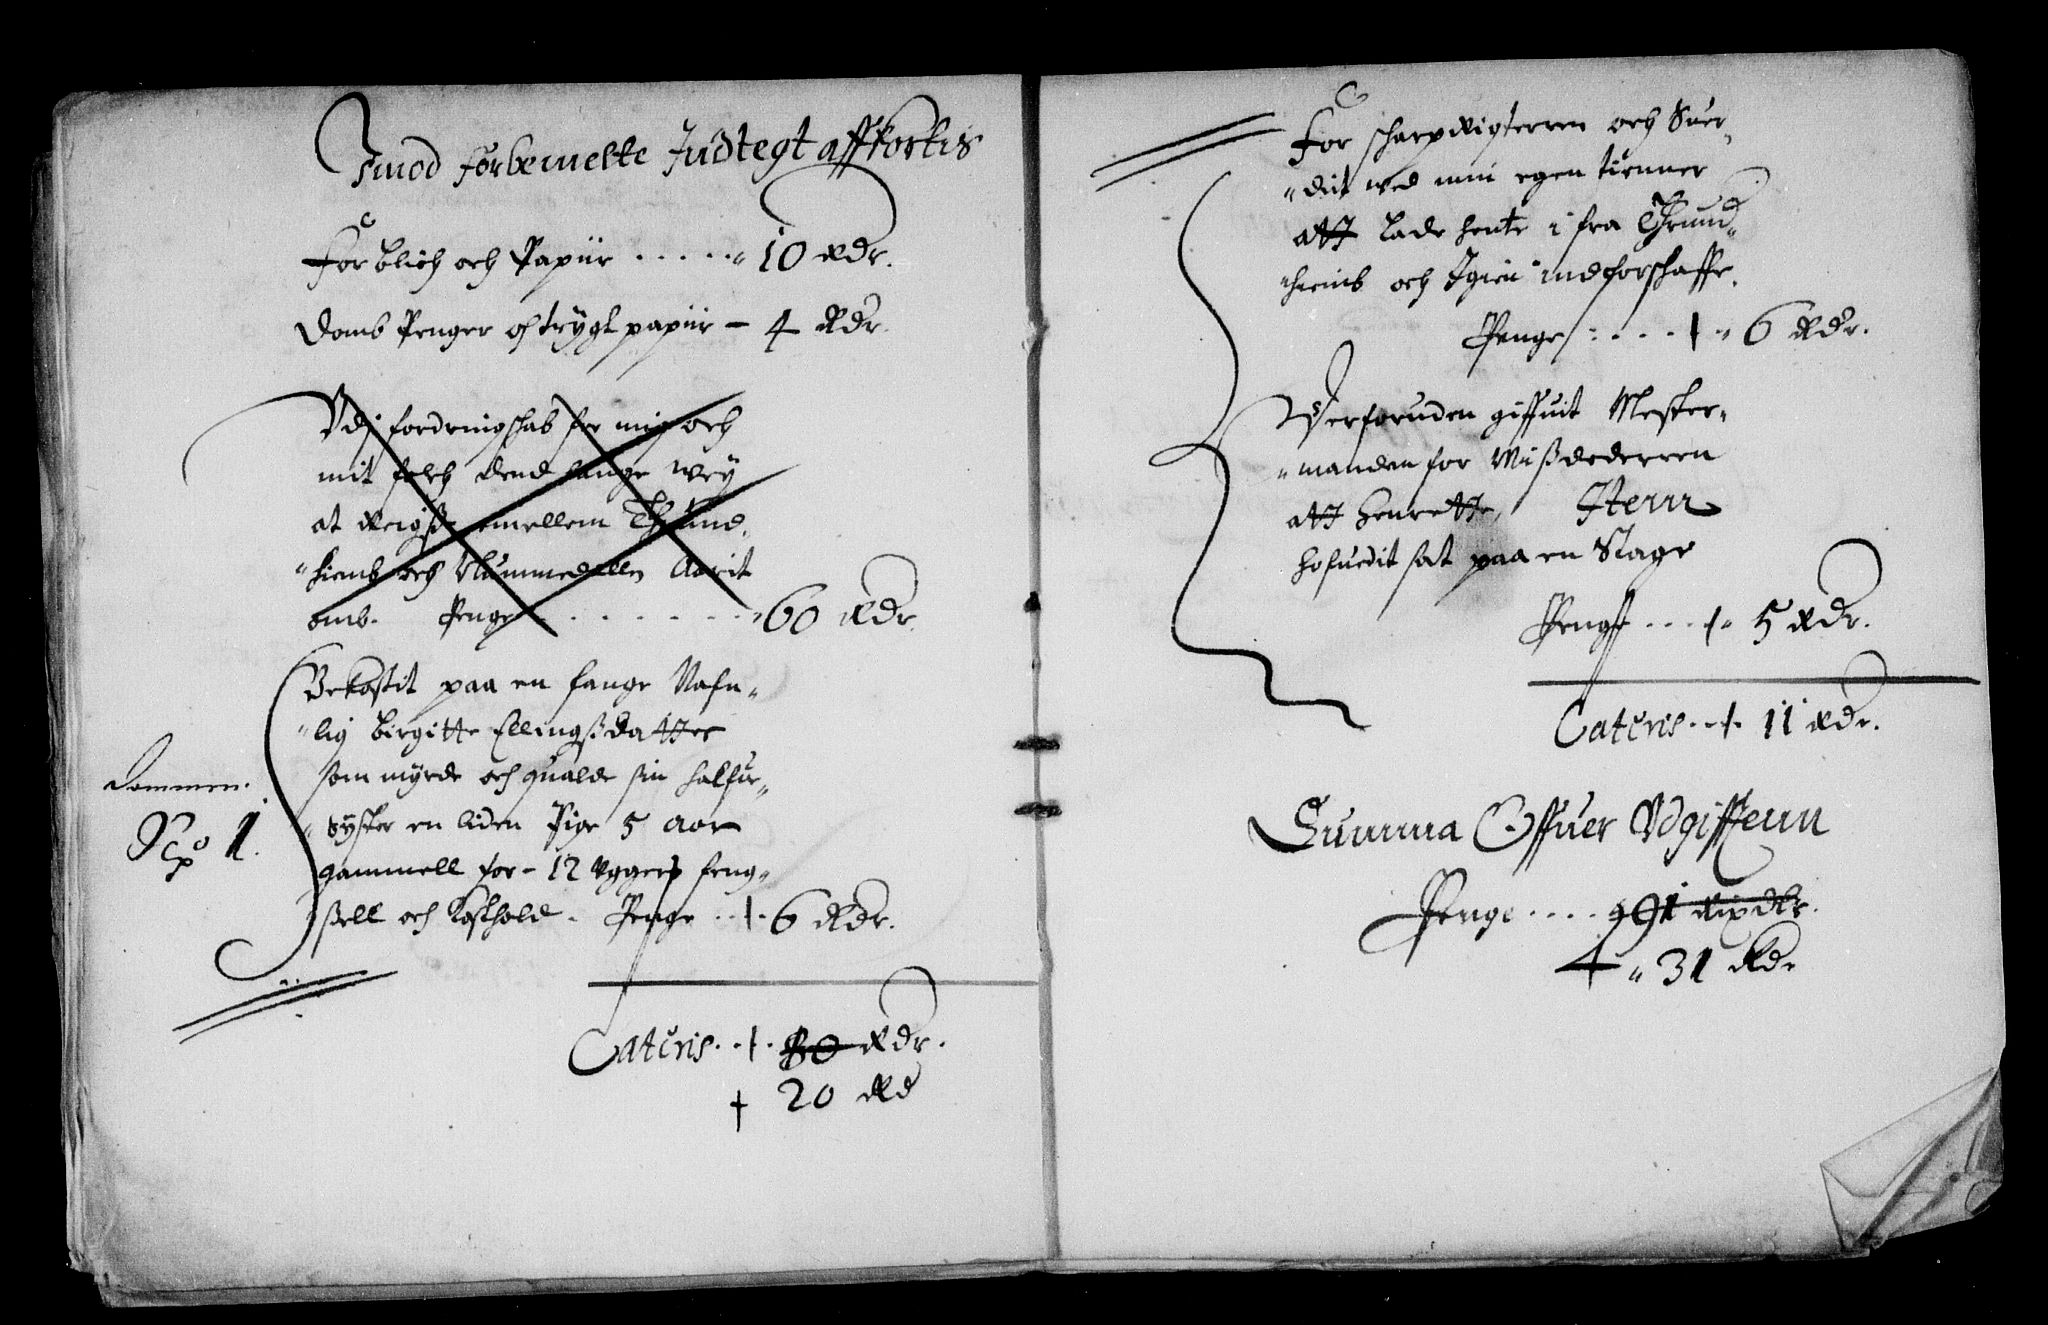 Imod forbemelte Indtegt affkortis
For blech och Papiir ..... 10 Rdr.
Domb Penger och trygt papiir – 4 Rdr.
Vdj fordringschab for mig och
mit folch dend lange Wey
at Reigsse emellem Thrund.
hiemb och Nummedalln Aarit
omb. Penge ....... 60 Rdr.
Bekostit paa en fange Nafn„
„lig Birgitte Ellingsdatter
som myrde och qualde sin halfue„
„syster en liden Pige 5 Aar
gammell for – 12 Vggers feng„
sell och Kosthold. Penge .. 6 Rdr.
Dommen.
No 1.
Lateris .. 80 Rdr.
20 Rd
For scharpRigterren och Suer„
„dit med min egen tienner
att lade hente i fra Thrund„
„hiemb och Igien indforschaffe.
Penge .... 6 Rdr.
Derforuden giffuit Mester„
„manden for Missdederren
att henrette, Item
hofuedit sat paa en Stage
Penge ... 5 Rdr.
Lateris .. 11 Rdr.
Summa Offuer Vdgifftenn
Penge .... 91 Rixdlr.
31 Rdr